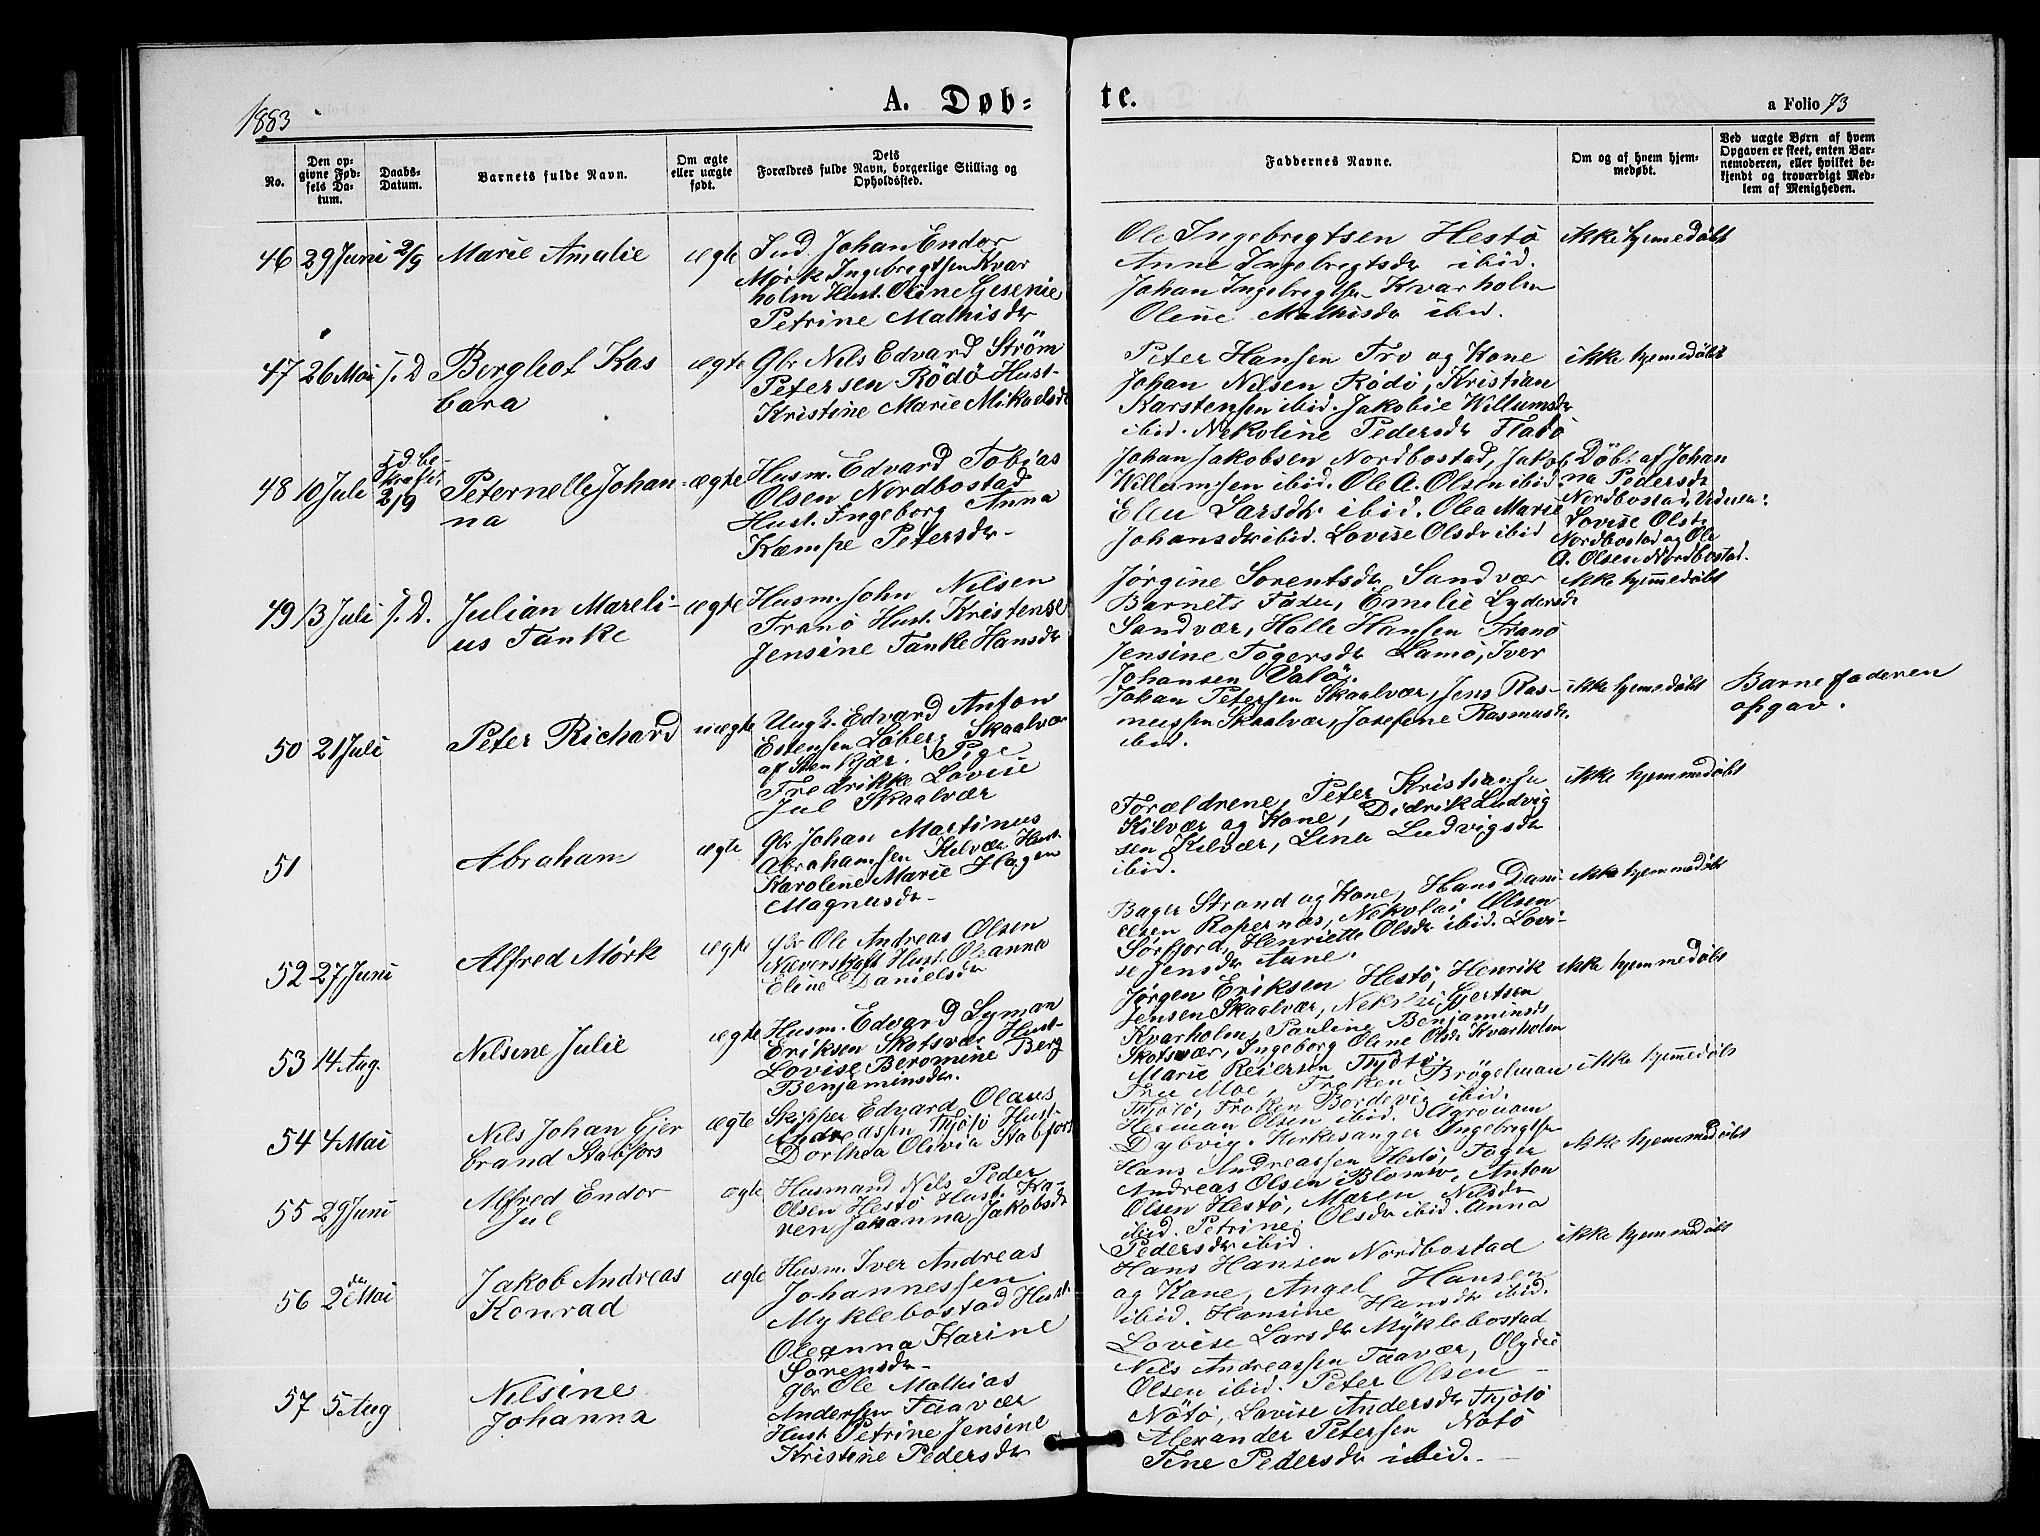 1883
A. Døb=
te.
a Folio 73
No.
Den op=
givne Fød=
sels Da=
tum.
Daabs=
Datum.
Barnets fulde Navn.
Om ægte
eller uægte
født.
Dets
Forældres fulde Navn, borgerlige Stilling og
Opholdssted.
Faddernes Navne.
Om og af hvem hjem=
medøbt.
Ved uægte Børn af hvem
Opgaven er skeet, enten Bar=
nemoderen, eller hvilket be=
kjendt og troværdigt Med=
lem af Menigheden.
46 29 Juni 2/9 Marie Amalie ægte
Ind. Johan Endor
Mörk Ingebregtsen Kvar
holm Hust. Oline Gesenie
Petrine Mathisdr
Ole Ingebregtsen Hestö
Anne Ingebregtsdr ibid.
Johan Ingebregtsen Kvarholm
Oline Mathisdr ibid.
ikke hjemedöbt
47 26 Mai s. D Bergleot Kas
bara
ægte
Gbr Nils Edvard Ström
Petersen Rödö Hust.
Kristine Marie Mikaelsdr
Peter Hansen Tro og Kone
Johan Nilsen Rödö, Kristian
Karstensen ibid. Jakobie Willumsdr
ibid. Nekoline Pedersdr Flatö
ikke hjemedöbt
48 10 Juli
2/9
Peternelle Johan
na
ægte
Husm. Edvard Tobias
Olsen Nordbostad
Hust. Ingeborg Anna
Kæmpe Petersdr
Johan Jakobsen Nordbostad, Jakob
Willumsen ibid. Ole A. Olsen ibid
Elen Larsdr ibid. Olea Marie
Johansdr ibid. Lovise Olsdr ibid
Döbt af Johan
na Pedersdr
Nordbostad,
Lovise Olsdr
Nordbostad og Ole
A. Olsen Nordbostad.
49 13 Juli s. D. Julian Mareli-
us Tanke
ægte
Husm. John Nilsen
Tranö Hust. Kristense
Jensine Tanke Hansdr
Jörgine Sorentsdr Sandvær
Barnets Fader, Emelie Lydersdr
Sandvær, Halle Hansen Tranö
Jensine Togersdr Lamö, Iver
Johansen Valö.
ikke hjemmedöbt
50 21 Juli Peter Richard uægte
Ungk. Edvard Anton
Estensen Löberg Skaalvær
af Stenkjær. Pige
Fredrikke Lovise
Jul Skaalvær
Johan Petersen Skaalvær, Jens Ras-
mussen Skaalvær, Josefine Rasmusdr
ibid.
ikke hjemedöbt
Barnefaderen
opgav.
51 Abraham ægte
Gbr Johan Martinus
Abrahamsen Kilvær Hust.
Karoline Marie Hagen
Magnusdr
Forældrene, Peter Kristiansen
Kilvær og Kone, Didrik Ludvig
sen Kilvær, Lina Ludvigsdr
ibid.
ikke hjemmedöbt
52 27 Juni Alfred Mörk ægte
Gbr Ole Andreas Olsen
Næverskaft Hust. Oleanna
Eline Danielsdr
Bager Strand og Kone, Hans Dani-
elsen Ropernæs, Nekolai Olsen
Sörfjord, Henriette Olsdr ibid. Lovi-
se Jensdr Aune.
ikke hjemmedöbt
53 14 Aug. Nilsine Julie ægte
Husm. Edvard Lyman
Eriksen Skotsvær Hust.
Lovise Beromine Berg
Benjaminsdr.
Jörgen Eriksen Hestö, Henrik
Jensen Skaalvær, Nekolai Gjertsen
Kvarholm, Pauline Benjaminsdr
Skotsvær, Ingeborg Oline Olsdr Kvarholm
Marie Reiersen Thjötö.
ikke hjemmedöbt
54 4 Mai Nils Johan Gjer
brand Stabfors
ægte
Skipper Edvard Olaus
Andreassen Thjötö Hust.
Dorthea Olivia Stabfors
Fru Moe, Fröken Brögelman
Thjötö, Fröken Bordevig ibid.
Herman Olsen ibid. Agronom
Dybvig. Kirkesanger Ingebrigtsen
ikke hjemmedöbt
55 29 Juni Alfred Endor
Jul
ægte
Husmand Nils Peder
Olsen Hestö Hust. Ka-
ren Johanna Jakobsdr
Hans Andreassen Hestö, Toger
Andreas Olsen Blomsö, Anton
Olsen Hestö, Maren Nilsdr
ibid. Petrine Olsdr ibid. Anna
Pedersdr ibid.
ikke hjemmedöbt
56 2den Mai Jakob Andreas
Konrad
ægte
Husm. Iver Andreas
Johannessen
Myklebostad Hust.
Oleanna Karine
Sörensdr
Hans Hansen Nordbostad
og Kone, Angel Hansen
ibid. Hansine Hansdr ibid.
Lovise Larsdr Myklebostad
ikke hjemmedöbt
57 5 Aug Nilsine
Johanna
Gbr Ole Mathias
Andersen Taavær
Hust. Petrine Jensine
Kristine Pedersdr
Nils Andreassen Taavær, Olydie
Olsen ibid. Peter Olsen
Nötö, Lovise Andersdr Thjötö
Alexander Petersen Nötö
Tine Pedersdr ibid.